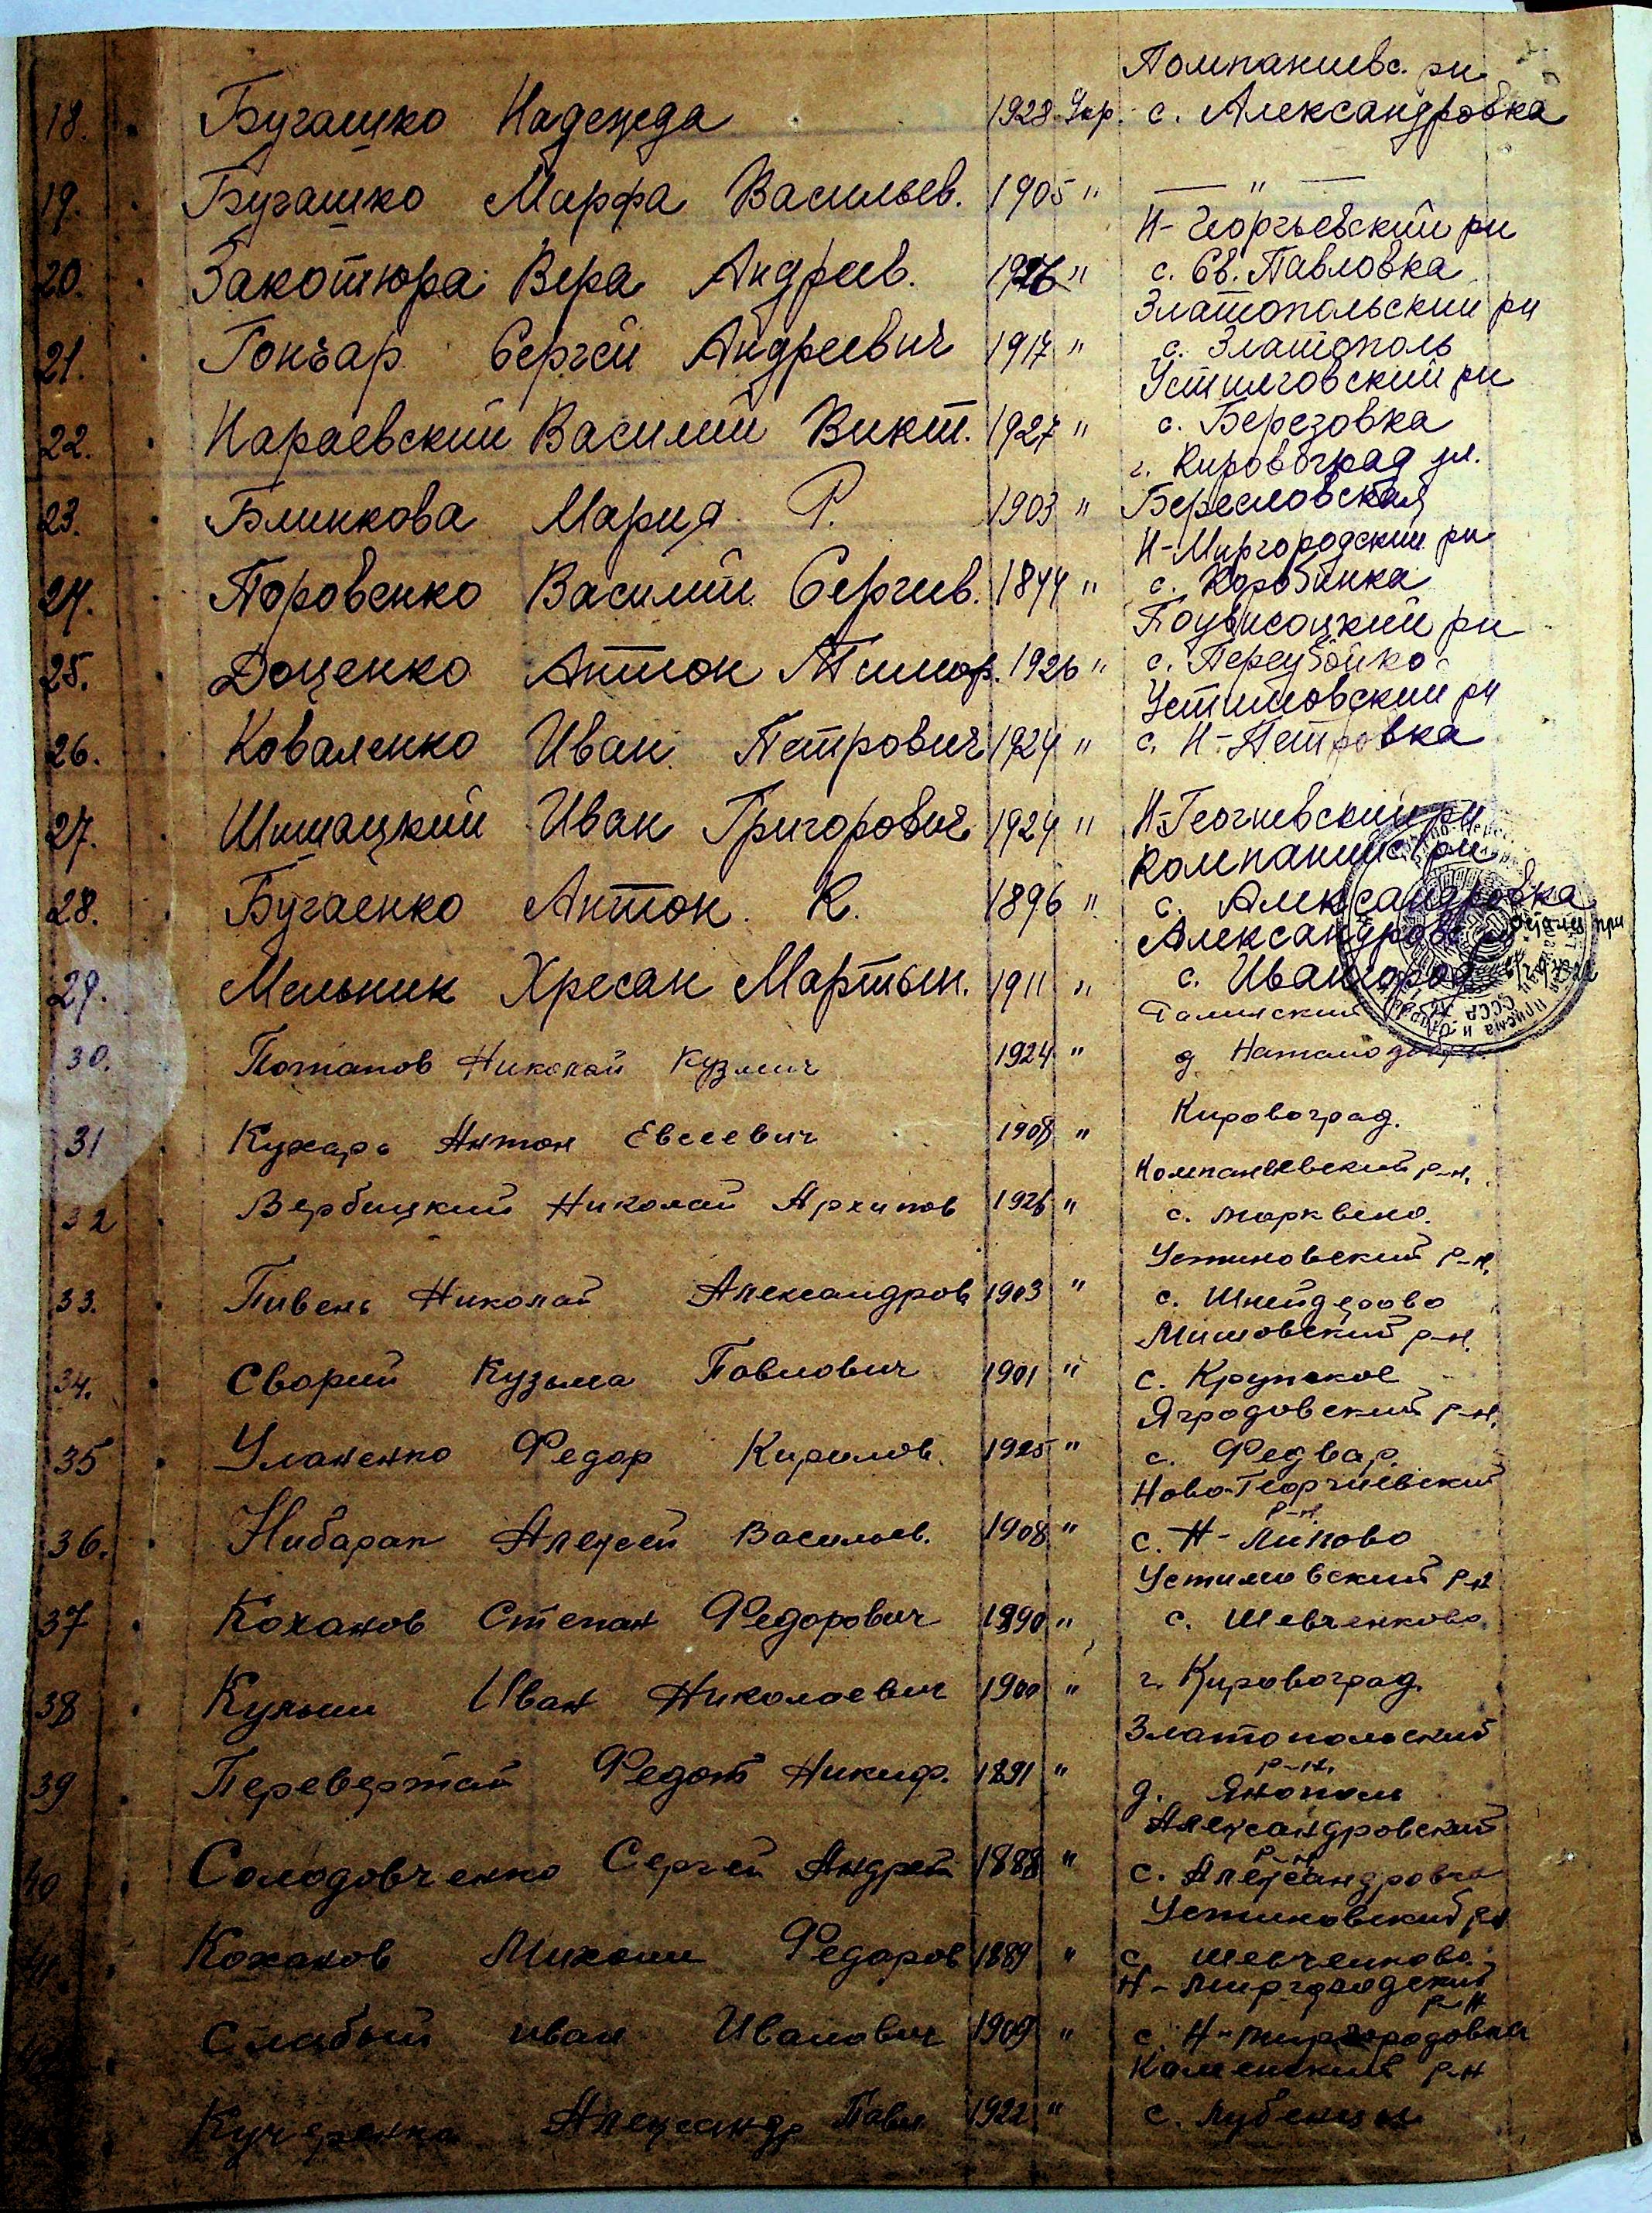 Компаниевс. рн
18. Бугашко Надежда 1928 Укр. с. Александровка
19. Бугашко Марфа Васильев. 1905 " — " —
Н-Георгьевский рн
20. Закотюра Вера Андреев. 1926 " с. Ев. Павловка
Златопольский рн
21. Гончар Сергей Андреевич 1917 " с. Златополь
Устимговский рн
22. Караевский Василий Викт. 1927 " с. Березовка
г. Кировоград ул.
23. Блинкова Мария Р. 1903 " Бересловская
Н-Миргородский рн
24. Поровенко Василий Сергеев. 1844 " с. Коробчика
рн
25. Доценко Антон Тимоф. 1926 " с.
Устимовский рн
26. Коваленко Иван Петрович 1924 " с. Н-Петровка
27. Шишацкий Иван Григорович 1924 " Н-Геогиевский рн
Компаниевс рн
28. Бугаенко Антон К. 1896 " с. Александровка
Александровс
29. Мельник Хресан Мартын. 1911 " с. Ивангород
30. Потапов Николай Кузмич 1924 " д.
31 Кухарь Антон Евсеевич 1908 " Кировоград.
Компаниевский р-н.
32 Вербицкий Николай Архипов 1926 " с. Марквено.
Устиновский р-н.
33. Пивень Николай Александров 1903 " с. Шнейдерово
р-н.
34. Сворий Кузьма Павлович 1901 " с. Крупское
р-н.
35 Уланенко Федор Кирилов. 1925 " с. Федвар.
Ново-Георгиевский
р-н
36. Кибарап Алексей Васильев. 1908 " с. Н-Липово
Устимовский р-н
37 Коханов Степан Федорович 1890 " с. Шевченково
38 Кулыш Иван Николаевич 1900 " г. Кировоград.
Златопольский
р-н.
39 Перевертай Федот Никиф. 1891 " д. Янополь
Александровский
р-н
40 Солодовченко Сергей Андрей 1888 " с. Александровка
Устиновский рн
41. Коханов Михаил Федоров 1889 " с. Шевченково.
Н-Миргородский
р-н
Слабый Иван Иванович 1909 " с. Н-Миргородовка
Каменский р-н
Кучеренко Александр Павл 1922 " с. Лубенцы